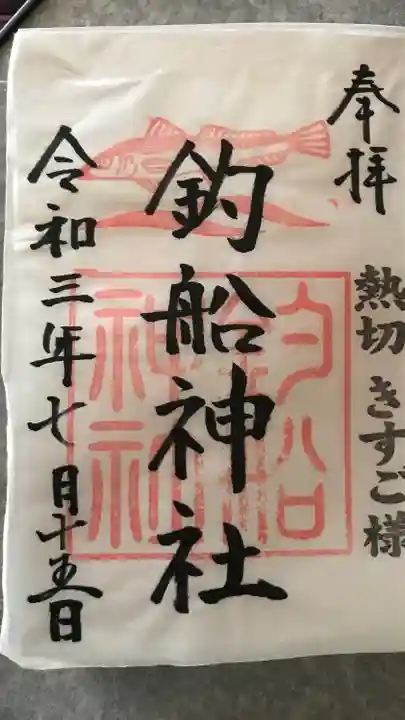 奉拝
熱切 きすご様
釣船神社
釣船神社
令和三年七月十五日